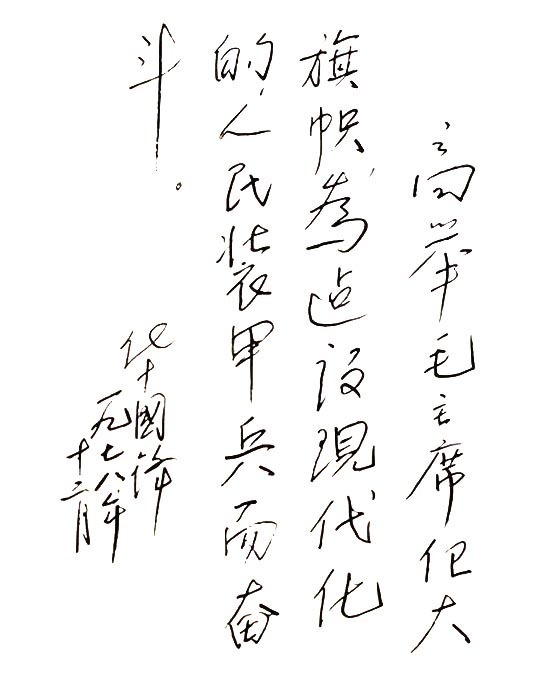 高举毛主席伟大
旗帜为建设现代化
的人民装甲兵而奋
斗。
华国锋
一九七八年
十二月